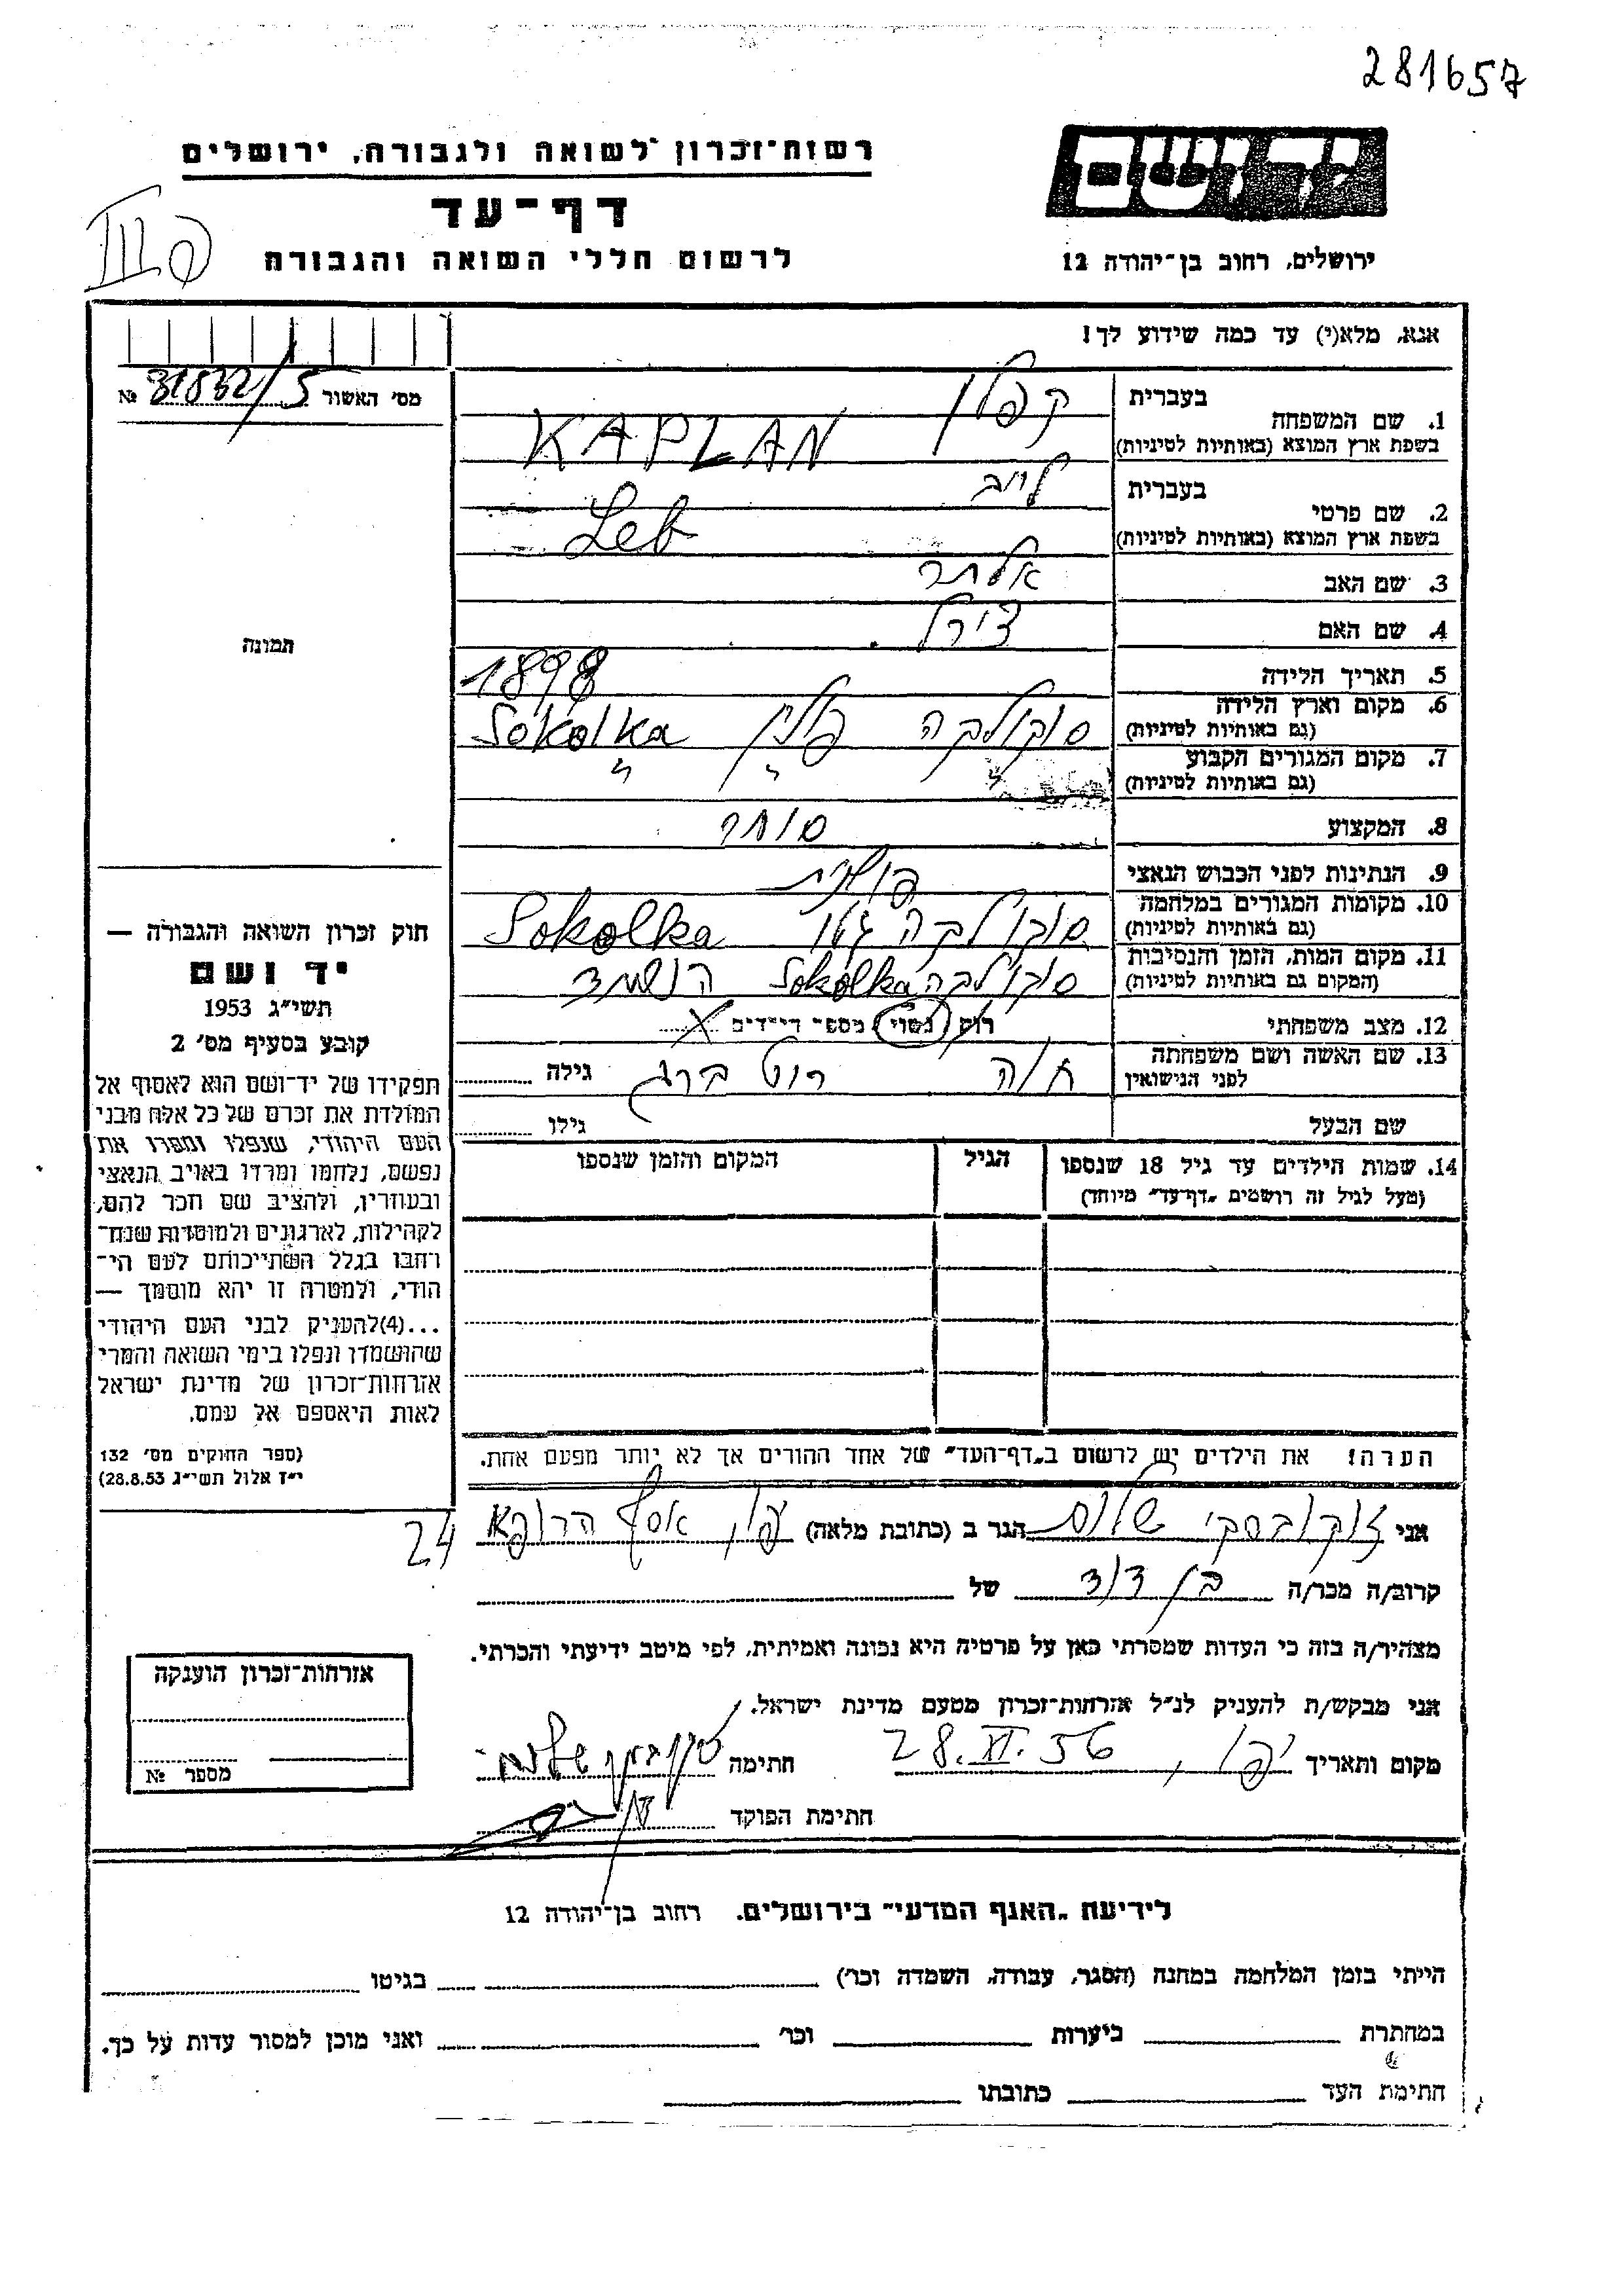 281657
יד ושם
רשות־זכרון לשואה ולגבורה, ירושלים
דף־עד
לרשום חללי השואה והגבורה
ירושלים, רחוב בן־יהודה 12
אנא, מלא(י) עד כמה שידוע לך!
מס' האשור 81832/5 №
בעברית קפלן
1. שם המשפחה
בשפת ארץ המוצא (באותיות לטיניות) KAPLAN
בעברית לייב
2. שם פרטי
בשפת ארץ המוצא (באותיות לטיניות) Leb
3. שם האב אלתר
4. שם האם צירל
5. תאריך הלידה 1898
6. מקום וארץ הלידה
(גם באותיות לטיניות) סוקולקה פולין Sokolka
7. מקום המגורים הקבוע
(גם באותיות לטיניות) " " "
8. המקצוע סוחר
9. הנתינות לפני הכבוש הנאצי פולנית
10. מקומות המגורים במלחמה
(גם באותיות לטיניות) סוקולקה גטו Sokolka
11. מקום המות, הזמן והנסיבות
(המקום גם באותיות לטיניות) סוקולקה Sokolka הושמד
12. מצב משפחתי רוק/נשוי מספר הילדים X
13. שם האשה ושם משפחתה
לפני הנישואין חוה רוטברג גילה
שם הבעל גילו
14. שמות הילדים עד גיל 18 שנספו הגיל המקום והזמן שנספו
(מעל לגיל זה רושמים „דף־עד" מיוחד)
הערה! את הילדים יש לרשום ב„דף־העד" של אחד ההורים אך לא יותר מפעם אחת.
תמונה
חוק זכרון השואה והגבורה —
יד ושם
תשי"ג 1953
קובע בסעיף מס' 2
תפקידו של יד־ושם הוא לאסוף אל
המולדת את זכרם של כל אלה מבני
העם היהודי, שנפלו ומסרו את
נפשם, נלחמו ומרדו באויב הנאצי
ובעוזריו, ולהציב שם וזכר להם,
לקהילות, לארגונים ולמוסדות שנח־
רבו בגלל השתייכותם לעם הי־
הודי, ולמטרה זו יהא מוסמך —
...(4)להעניק לבני העם היהודי
שהושמדו ונפלו בימי השואה והמרי
אזרחות־זכרון של מדינת ישראל
לאות היאספם אל עמם.
(ספר החוקים מס' 132
י"ז אלול תשי"ג 28.8.53)
אני שלום הגר ב (כתובת מלאה) יפו, אסף הרופא 24
קרוב/ה מכר/ה בן דוד של
מצהיר/ה בזה כי העדות שמסרתי כאן על פרטיה היא נכונה ואמיתית, לפי מיטב ידיעתי והכרתי.
אני מבקש/ת להעניק לנ"ל אזרחות־זכרון מטעם מדינת ישראל.
מקום ותאריך יפו, 28.VI.56 חתימה
חתימת הפוקד
אזרחות־זכרון הוענקה
מספר №
לידיעת „האגף המדעי" בירושלים. רחוב בן־יהודה 12
הייתי בזמן המלחמה במחנה (הסגר, עבודה, השמדה וכר') בגיטו
במחתרת ביערות וכר' ואני מוכן למסור עדות על כך.
חתימת העד כתובתו